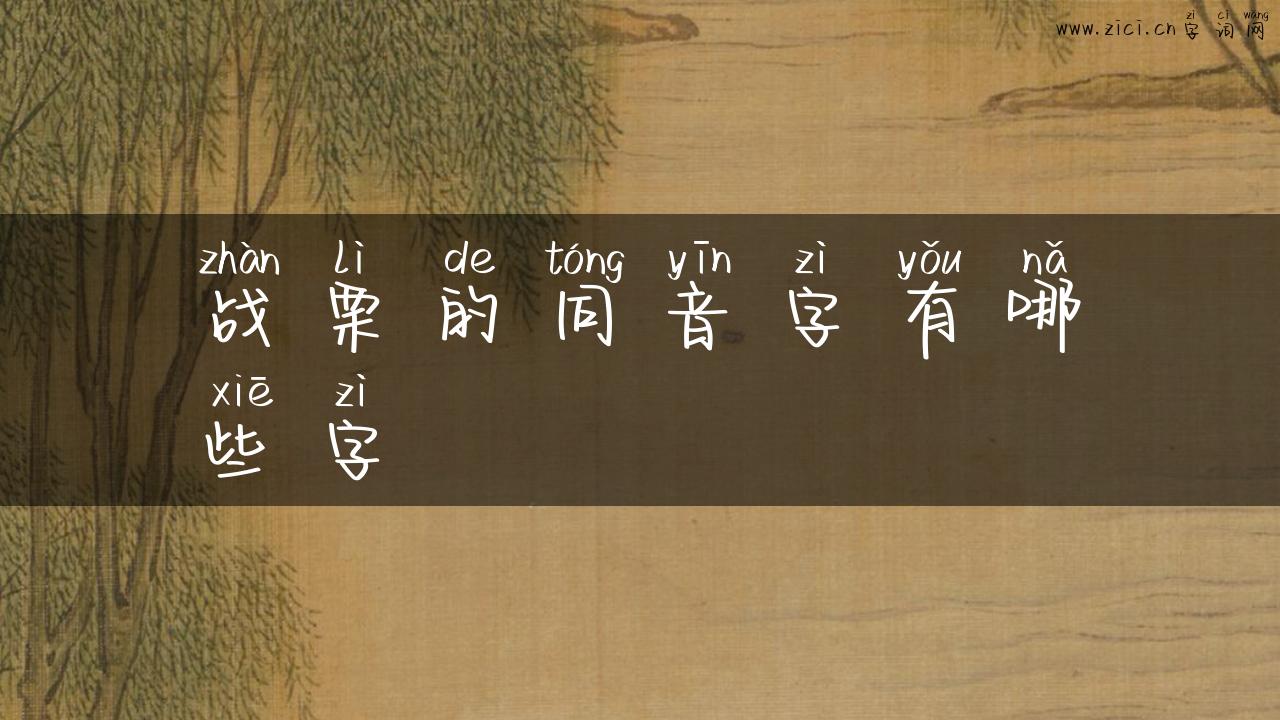 zì cí wǎng
www.zici.cn 字词网
zhàn lì de tóng yīn zì yǒu nǎ
战栗的同音字有哪
xiē zì
些字